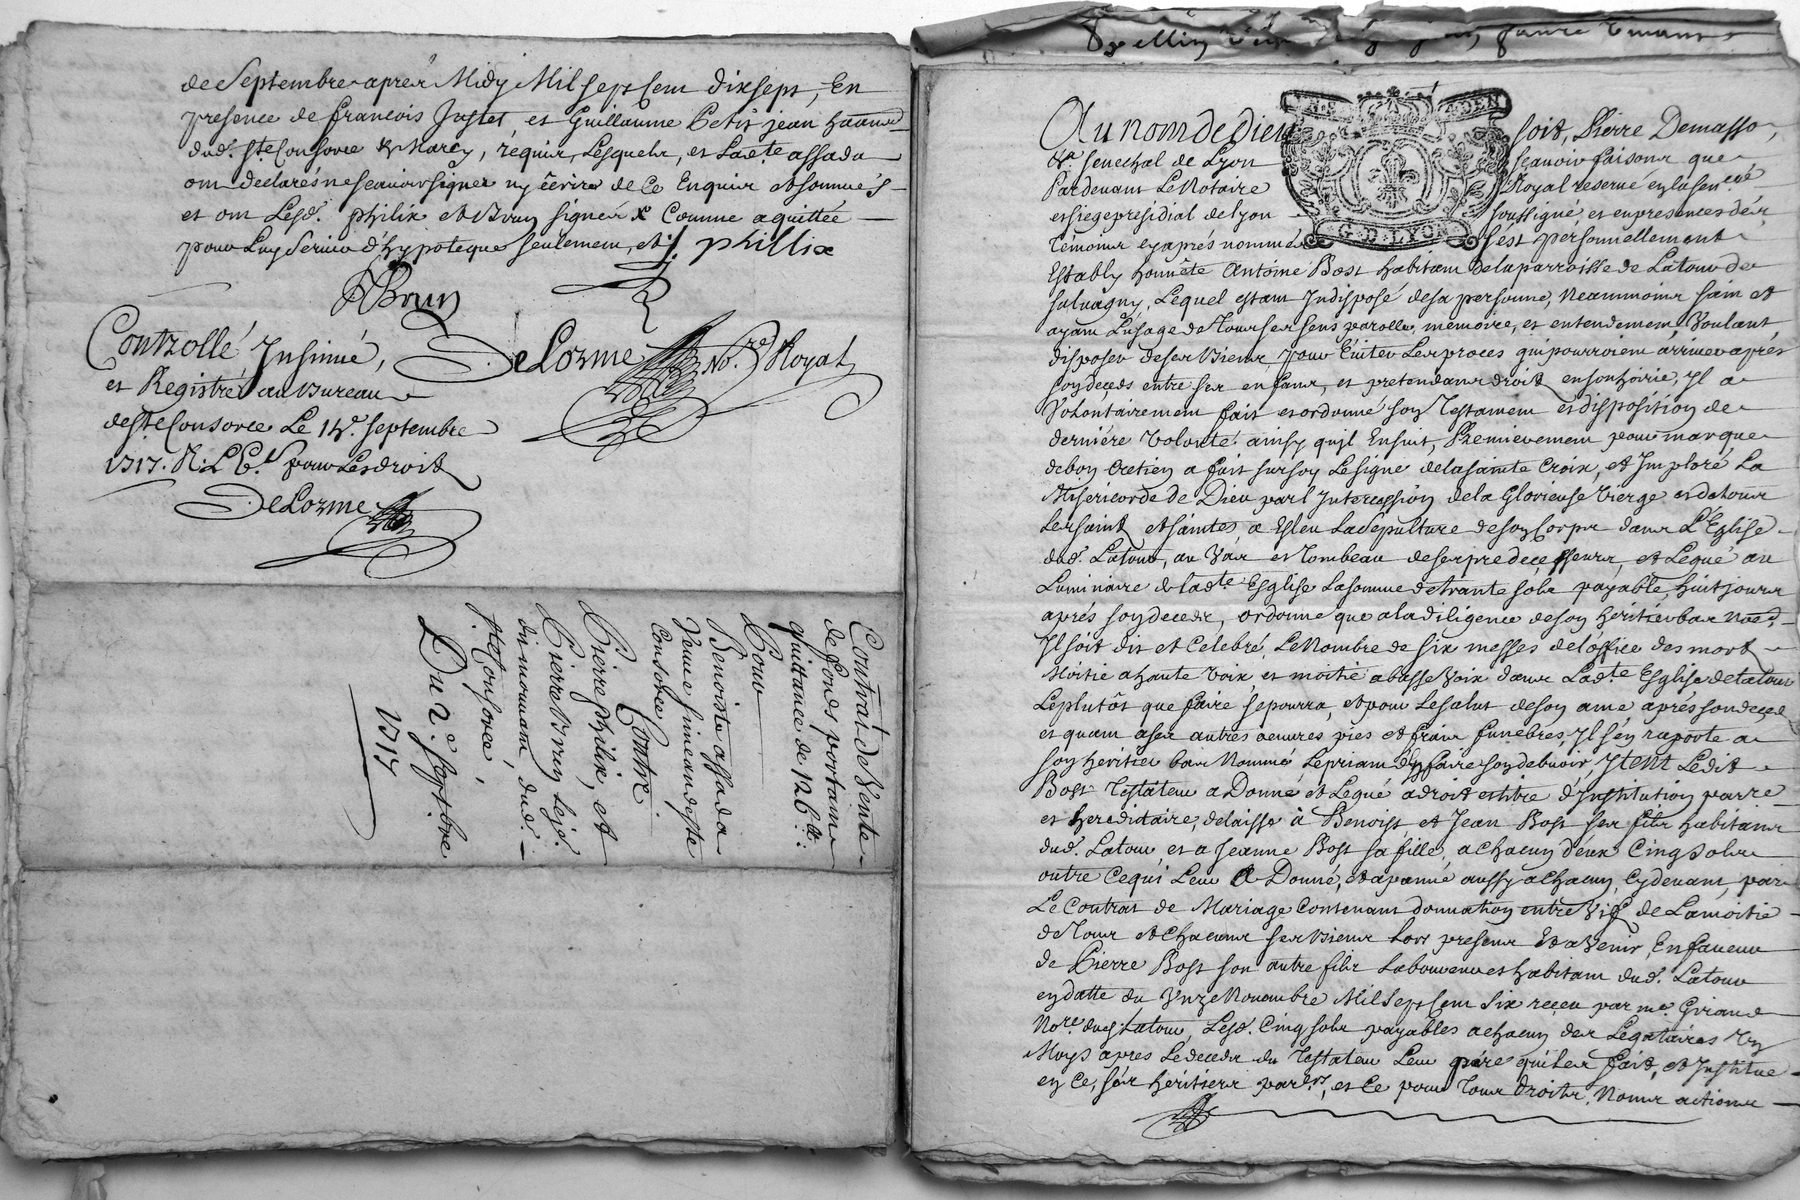 de Septembre apres Midy Mil sept cent dixsept, En
presence de francois Justet, et Guillaume Petit jean
dud. Ste Consorce & Marcy, requis, Lesquels, et Ladte assada
ont declarés ne scauoir signer ny écrire de ce Enquis et sommés
et ont Lesd. philix et Brun signés & Comme aquittée
pour Luy Seruir d'hypoteque seulement, et phillix
Brun
Controllé Insinué,
DeLorme No.re Royal
et Registré au Bureau
de ste Consorce Le 14e septembre
1717. R: pour Les droit
DeLorme
Contrat de Vente
de fonds portant
quittance de 126ll:
Pour
Benoiste assada
Veuve simeand de ste
Consorce
Contre
Pierre philix, et
Pierre Brun Lejeᵉ
dud.
ste Consorce,
Du 2e septbre
1717
Au nom de dieu soit, Pierre Demasso,
Senechal de Lyon scauoir faisons que
Pardeuant Le Notaire Royal reserué en la senee
et siege presidial de lyon soussigné, et en presences des
G.D.LYON
temoins cy aprés nommés s'est personnellement
Estably honnête Antoine Bost habitant de la parroisse de Latour de
saluagny, Lequel estant Indisposé de sa personne, Neanmoins sain et
ayant L'usage de Tous ses sens parolle, memoire, et entendement, Voulant
disposer de ses Biens, pour Euiter Les proces qui pourroient arriuer aprés
son deceds entre ses enfans, et pretendans droit en son hoirie, Il a
Volontairement fait et ordonné son Testament et disposition de
derniére Volonté ainsy qu'il Ensuit, Premierement pour marque
de bon cretien a fait sur soy Le signe de la sainte Croix, et Imploré La
Misericorde de Dieu par l'Intercession de la Glorieuse Vierge et de tous
Les saints et saintes, a Esleu La sepulture de son Corps dans L'Eglise
dud. Latour, au Vas et Tombeau de ses predecesseurs, et Legué au
Luminaire de ladte Esglise La somme de trante sols payable, huit jours
aprés son deceds, ordonne que a la diligence de son heritier bas
Il soit dit et Celebré, Le Nombre de six messes de l'office des morts
Moitié a haute Voix, et moitié a basse Voix dans Ladte Esglise de Latour
Le plutôt que faire se pourra, et pour Le salut de son ame aprés son deceds
et quant a ses autres oeuures pies et frais funebres, Il s'en raporte a
son heritier bas Nommé Le priant d'En faire son debuoir, Item Ledit
Bost Testateur a Donné et Legué a droit et titre d'Institution par.re
et hereditaire, delaisse à Benoist et Jean Bost ses fils habitans
dud. Latour, et a Jeanne Bost sa fille, a chacun d'eux Cinq sols
outre Ce qu'i Leur A Donné, et apanné aussy a chacun, Cy deuant, par
Le Contrat de Mariage Contenant donnation entre Vifs de La moitié
de Tous et Chacuns ses Biens Lors presens Et a Venir, En faueur
de Pierre Bost son autre fils Laboureur et habitant dud. Latour
en datte du Unze Nouambre Mil Sept Cent Six receu par me. Girauᵈ
No.re dud. Latour, Lesd. Cinq sols payables a chacun des Legataires Un
Moys apres Le deceds du Testateur Leur pére qui Les fait, et Institue
en Ce, ses heritiers par.rs, et Ce pour Tous droits, Noms actions